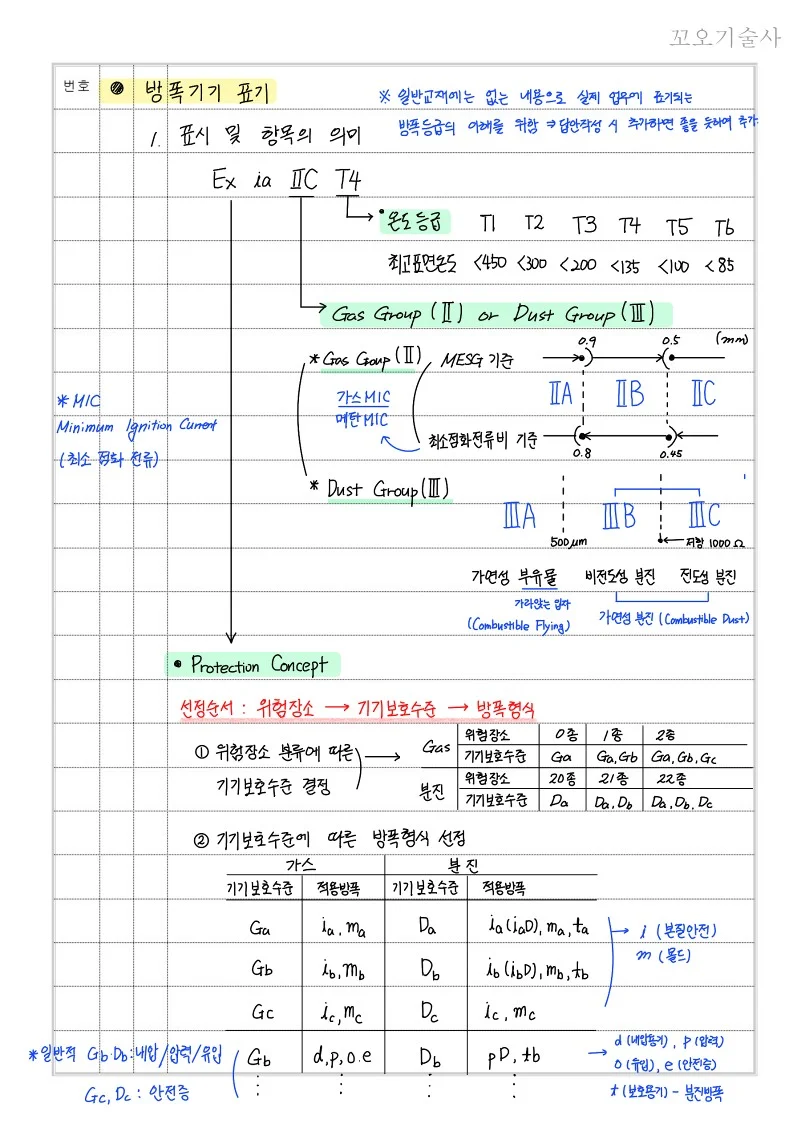 꼬오기술사
번호 방폭기기 표기
※ 일반교재에는 없는 내용으로 실제 업무에 표기되는
방폭등급의 이해를 위함 ⇒ 답안작성 시 추가하면 좋을 듯하여 추가.
1. 표시 및 항목의 의미
Ex ia ⅡC T4
• 온도등급 T1 T2 T3 T4 T5 T6
최고표면온도 <450 <300 <200 <135 <100 <85
Gas Group (Ⅱ) or Dust Group (Ⅲ)
0.9 0.5 (mm)
* Gas Group (Ⅱ) MESG 기준
ⅡA ⅡB ⅡC
가스MIC
메탄MIC
* MIC
Minimum Ignition Current
(최소 점화 전류)
최소점화전류비 기준
0.8 0.45
* Dust Group(Ⅲ)
ⅢA ⅢB ⅢC
500㎛ 저항 1000 Ω
가연성 부유물 비전도성 분진 전도성 분진
가라앉는 입자
(Combustible Flying)
가연성 분진 (Combustible Dust)
• Protection Concept
선정순서 : 위험장소 → 기기보호수준 → 방폭형식
① 위험장소 분류에 따른
기기보호수준 결정
Gas 위험장소 0종 1종 2종
기기보호수준 Ga Ga, Gb Ga, Gb, Gc
분진 위험장소 20종 21종 22종
기기보호수준 Da Da, Db Da, Db, Dc
② 기기보호수준에 따른 방폭형식 선정
가스 분진
기기보호수준 적용방폭 기기보호수준 적용방폭
Ga ia, ma Da ia(iaD), ma, ta
Gb ib, mb Db ib(ibD), mb, tb
Gc ic, mc Dc ic, mc
i (본질안전)
m (몰드)
Gb d, p, o. e Db pD, tb
*일반적 Gb·Db : 내압/압력/유입
Gc, Dc : 안전증
d (내압용기), p (압력)
o (유입), e (안전증)
t (보호용기) - 분진방폭